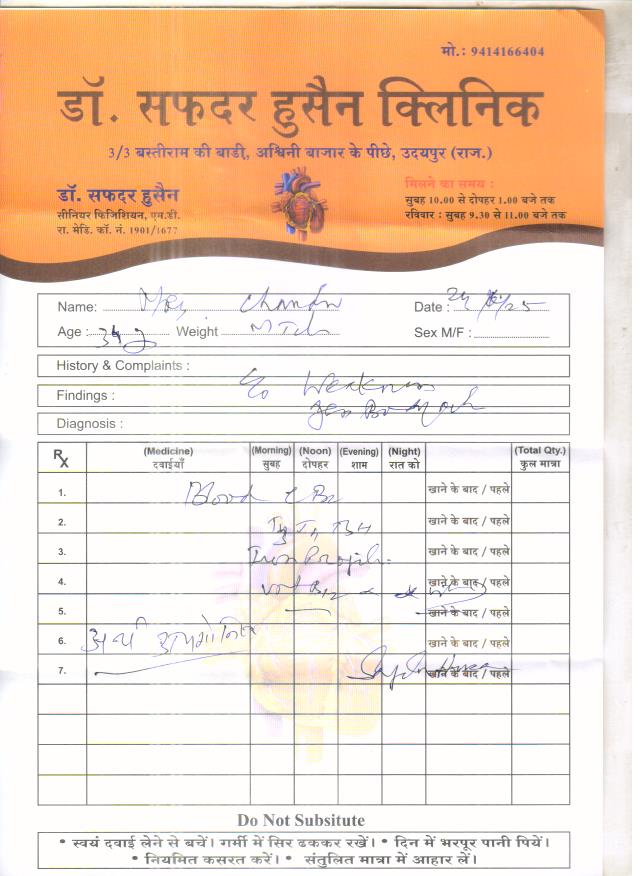 मो.: 9414166404
डॉ. सफदर हुसैन क्लिनिक
3/3 बस्तीराम की बाडी, अश्विनी बाजार के पीछे, उदयपुर (राज.)
डॉ. सफदर हुसैन
सीनियर फिजिशियन, एम.डी.
रा. मेडि. कॉ. नं. 1901/1677
मिलने का समय :
सुबह 10.00 से दोपहर 1.00 बजे तक
रविवार : सुबह 9.30 से 11.00 बजे तक
Name: Chandu Date :
Age : 34 y Weight Sex M/F :
History & Complaints :
Findings : c/o Weakness
Diagnosis :
Rx (Medicine) (Morning) (Noon) (Evening) (Night) (Total Qty.)
दवाईयाँ सुबह दोपहर शाम रात को कुल मात्रा
1. Blood खाने के बाद / पहले
2. TSH खाने के बाद / पहले
3. Iron Profile खाने के बाद / पहले
4. B12 खाने के बाद / पहले
5. खाने के बाद / पहले
6. खाने के बाद / पहले
7. खाने के बाद / पहले
Do Not Subsitute
* स्वयं दवाई लेने से बचें। गर्मी में सिर ढककर रखें। * दिन में भरपूर पानी पियें।
* नियमित कसरत करें। * संतुलित मात्रा में आहार लें।